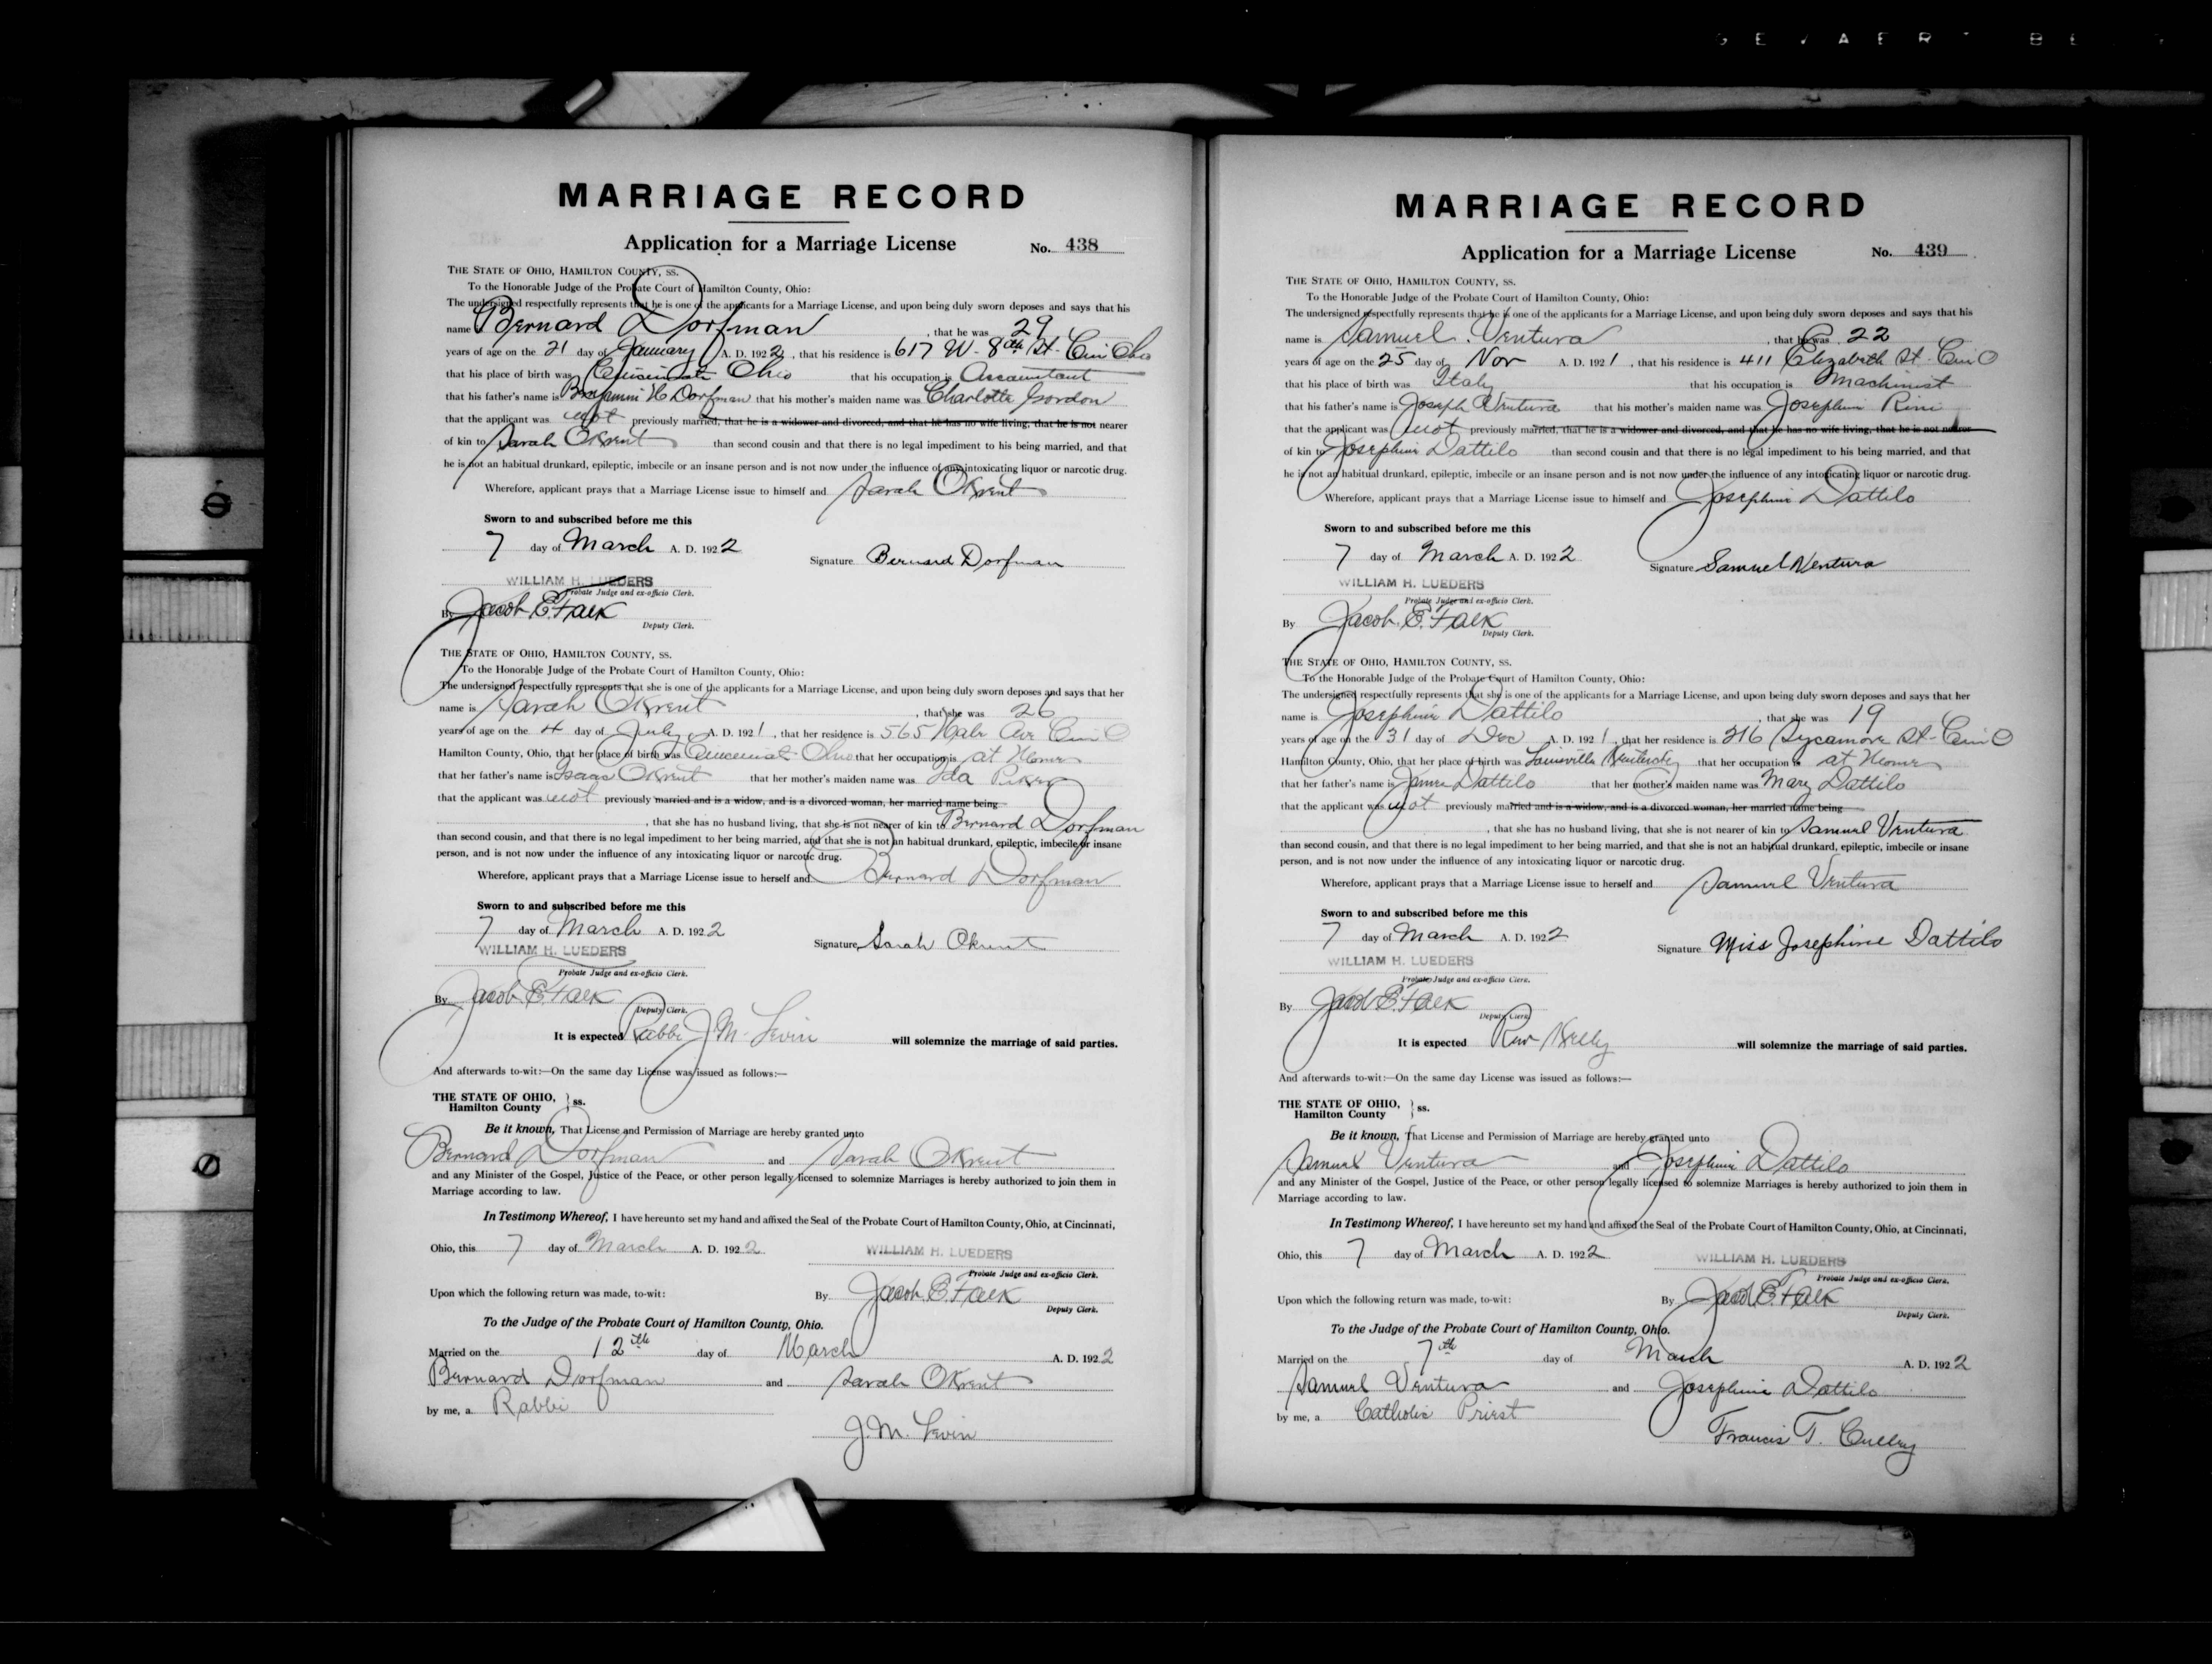 GEVAERT BE
MARRIAGE RECORD
Application for a Marriage License No. 438
THE STATE OF OHIO, HAMILTON COUNTY, SS.
To the Honorable Judge of the Probate Court of Hamilton County, Ohio:
The undersigned respectfully represents that he is one of the applicants for a Marriage License, and upon being duly sworn deposes and says that his
name Bernard Dorfman, that he was 29
years of age on the 21 day of January A. D. 1922, that his residence is 617 W-8th St- Cin Ohio
that his place of birth was Cincinnati Ohio that his occupation is Accountant
that his father's name is Benjamin H Dorfman that his mother's maiden name was Charlotte Gordon
that the applicant was not previously married, that he is a widower and divorced, and that he has no wife living, that he is not nearer
of kin to Sarah Okrent than second cousin and that there is no legal impediment to his being married, and that
he is not an habitual drunkard, epileptic, imbecile or an insane person and is not now under the influence of any intoxicating liquor or narcotic drug.
Wherefore, applicant prays that a Marriage License issue to himself and Sarah Okrent
Sworn to and subscribed before me this
7 day of March A. D. 1922
Signature Bernard Dorfman
WILLIAM H. LUEDERS
Probate Judge and ex-officio Clerk.
By Jacob E. Falk
Deputy Clerk.
THE STATE OF OHIO, HAMILTON COUNTY, SS.
To the Honorable Judge of the Probate Court of Hamilton County, Ohio:
The undersigned respectfully represents that she is one of the applicants for a Marriage License, and upon being duly sworn deposes and says that her
name is Sarah Okrent, that she was 26
years of age on the 4 day of July A. D. 1921, that her residence is 565 Hale Ave Cin O
Hamilton County, Ohio, that her place of birth was Cincinnati Ohio that her occupation is at Home
that her father's name is Isaac Okrent that her mother's maiden name was Ida
that the applicant was not previously married and is a widow, and is a divorced woman, her married name being
, that she has no husband living, that she is not nearer of kin to Bernard Dorfman
than second cousin, and that there is no legal impediment to her being married, and that she is not an habitual drunkard, epileptic, imbecile or insane
person, and is not now under the influence of any intoxicating liquor or narcotic drug.
Wherefore, applicant prays that a Marriage License issue to herself and Bernard Dorfman
Sworn to and subscribed before me this
7 day of March A. D. 1922
WILLIAM H. LUEDERS
Signature Sarah Okrent
Probate Judge and ex-officio Clerk.
By Jacob E. Falk
Deputy Clerk.
It is expected Rabbi J M. Levin will solemnize the marriage of said parties.
And afterwards to-wit:—On the same day License was issued as follows:—
THE STATE OF OHIO, } ss.
Hamilton County
Be it known, That License and Permission of Marriage are hereby granted unto
Bernard Dorfman and Sarah Okrent
and any Minister of the Gospel, Justice of the Peace, or other person legally licensed to solemnize Marriages is hereby authorized to join them in
Marriage according to law.
In Testimony Whereof, I have hereunto set my hand and affixed the Seal of the Probate Court of Hamilton County, Ohio, at Cincinnati,
Ohio, this 7 day of March A. D. 1922
WILLIAM H. LUEDERS
Probate Judge and ex-officio Clerk.
Upon which the following return was made, to-wit: By Jacob E. Falk
Deputy Clerk.
To the Judge of the Probate Court of Hamilton County, Ohio.
Married on the 12th day of March A. D. 1922
Bernard Dorfman and Sarah Okrent
by me, a Rabbi
J. M. Levin
MARRIAGE RECORD
Application for a Marriage License No. 439
THE STATE OF OHIO, HAMILTON COUNTY, SS.
To the Honorable Judge of the Probate Court of Hamilton County, Ohio:
The undersigned respectfully represents that he is one of the applicants for a Marriage License, and upon being duly sworn deposes and says that his
name is Samuel Ventura, that he was 22
years of age on the 25 day of Nov A. D. 1921, that his residence is 411 Elizabeth St- Cin O
that his place of birth was Italy that his occupation is Machinist
that his father's name is Joseph Ventura that his mother's maiden name was Josephine Rini
that the applicant was not previously married, that he is a widower and divorced, and that he has no wife living, that he is not nearer
of kin to Josephine Dattilo than second cousin and that there is no legal impediment to his being married, and that
he is not an habitual drunkard, epileptic, imbecile or an insane person and is not now under the influence of any intoxicating liquor or narcotic drug.
Wherefore, applicant prays that a Marriage License issue to himself and Josephine Dattilo
Sworn to and subscribed before me this
7 day of March A. D. 1922
Signature Samuel Ventura
WILLIAM H. LUEDERS
Probate Judge and ex-officio Clerk.
By Jacob E. Falk
Deputy Clerk.
THE STATE OF OHIO, HAMILTON COUNTY, SS.
To the Honorable Judge of the Probate Court of Hamilton County, Ohio:
The undersigned respectfully represents that she is one of the applicants for a Marriage License, and upon being duly sworn deposes and says that her
name is Josephine Dattilo, that she was 19
years of age on the 31 day of Dec A. D. 1921, that her residence is 216 Sycamore St- Cin O
Hamilton County, Ohio, that her place of birth was Louisville Kentucky that her occupation is at Home
that her father's name is James Dattilo that her mother's maiden name was Mary Dattilo
that the applicant was not previously married and is a widow, and is a divorced woman, her married name being
, that she has no husband living, that she is not nearer of kin to Samuel Ventura
than second cousin, and that there is no legal impediment to her being married, and that she is not an habitual drunkard, epileptic, imbecile or insane
person, and is not now under the influence of any intoxicating liquor or narcotic drug.
Wherefore, applicant prays that a Marriage License issue to herself and Samuel Ventura
Sworn to and subscribed before me this
7 day of March A. D. 1922
Signature Miss Josephine Dattilo
WILLIAM H. LUEDERS
Probate Judge and ex-officio Clerk.
By Jacob E. Falk
Deputy Clerk
It is expected Rev Kelly will solemnize the marriage of said parties.
And afterwards to-wit:—On the same day License was issued as follows:—
THE STATE OF OHIO, } ss.
Hamilton County
Be it known, That License and Permission of Marriage are hereby granted unto
Samuel Ventura and Josephine Dattilo
and any Minister of the Gospel, Justice of the Peace, or other person legally licensed to solemnize Marriages is hereby authorized to join them in
Marriage according to law.
In Testimony Whereof, I have hereunto set my hand and affixed the Seal of the Probate Court of Hamilton County, Ohio, at Cincinnati,
Ohio, this 7 day of March A. D. 1922
WILLIAM H. LUEDERS
Probate Judge and ex-officio Clerk.
Upon which the following return was made, to-wit: By Jacob E. Falk
Deputy Clerk.
To the Judge of the Probate Court of Hamilton County, Ohio.
Married on the 7th day of March A. D. 1922
Samuel Ventura and Josephine Dattilo
by me, a Catholic Priest
Francis T. Culley